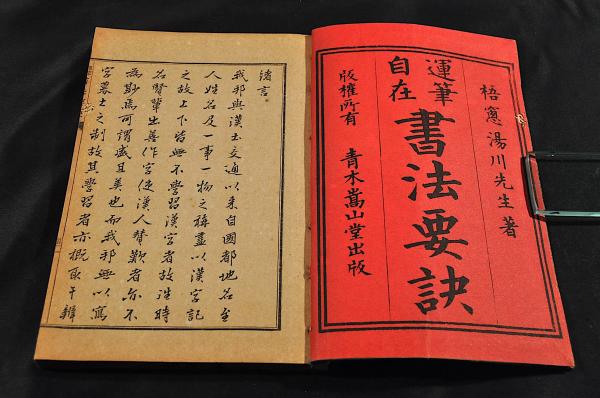 梧窻湯川先生著
運筆
自在
書法要訣
版權所有
青木嵩山堂出版
緒言
我邦與漢土交通以来自國都地名至
人姓名及一事一物之稱盡以漢字記
之故上下皆無不學習漢字者故時
名賢輩出善作字使漢人賛歎者亦不
為尠焉可謂盛且美也而我邦無以寫
字募士之制故其學習者亦概取于辨